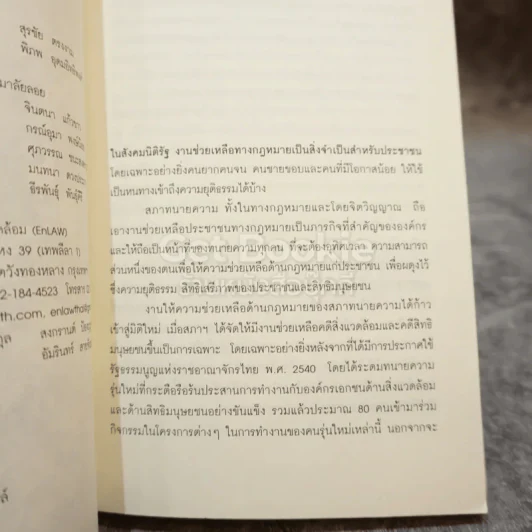 สุรชัย ตรงงาม
พิภพ
มาลัยลอย
จินตนา แก้วขาว
กรณ์อุมา
ศุภวรรณ
มนทนา
ธีรพันธุ์ พันธุ์คีรี
ล้อม (EnLAW)
หง 39 (เทพลีลา 1)
วังทองหลาง กรุงเทพ
2-184-4523 โทรสาร
th.com, enlawthai@
สงกรานต์
อัมรินทร์
ในสังคมนิติรัฐ งานช่วยเหลือทางกฎหมายเป็นสิ่งจำเป็นสำหรับประชาชน
โดยเฉพาะอย่างยิ่งคนยากคนจน คนชายขอบและคนที่มีโอกาสน้อย ให้ใช้
เป็นหนทางเข้าถึงความยุติธรรมได้บ้าง
สภาทนายความ ทั้งในทางกฎหมายและโดยจิตวิญญาณ ถือ
เอางานช่วยเหลือประชาชนทางกฎหมายเป็นภารกิจที่สำคัญขององค์กร
และให้ถือเป็นหน้าที่ของทนายความทุกคน ที่จะต้องอุทิศเวลา ความสามารถ
ส่วนหนึ่งของตนเพื่อให้ความช่วยเหลือด้านกฎหมายแก่ประชาชน เพื่อผดุงไว้
ซึ่งความยุติธรรม สิทธิเสรีภาพของประชาชนและสิทธิมนุษยชน
งานให้ความช่วยเหลือด้านกฎหมายของสภาทนายความได้ก้าว
เข้าสู่มิติใหม่ เมื่อสภาฯ ได้จัดให้มีงานช่วยเหลือคดีสิ่งแวดล้อมและคดีสิทธิ
มนุษยชนขึ้นเป็นการเฉพาะ โดยเฉพาะอย่างยิ่งหลังจากที่ได้มีการประกาศใช้
รัฐธรรมนูญแห่งราชอาณาจักรไทย พ.ศ. 2540 โดยได้ระดมทนายความ
รุ่นใหม่ที่กระตือรือร้นประสานการทำงานกับองค์กรเอกชนด้านสิ่งแวดล้อม
และด้านสิทธิมนุษยชนอย่างขันแข็ง รวมแล้วประมาณ 80 คนเข้ามาร่วม
กิจกรรมในโครงการต่างๆ ในการทำงานของคนรุ่นใหม่เหล่านี้ นอกจากจะ